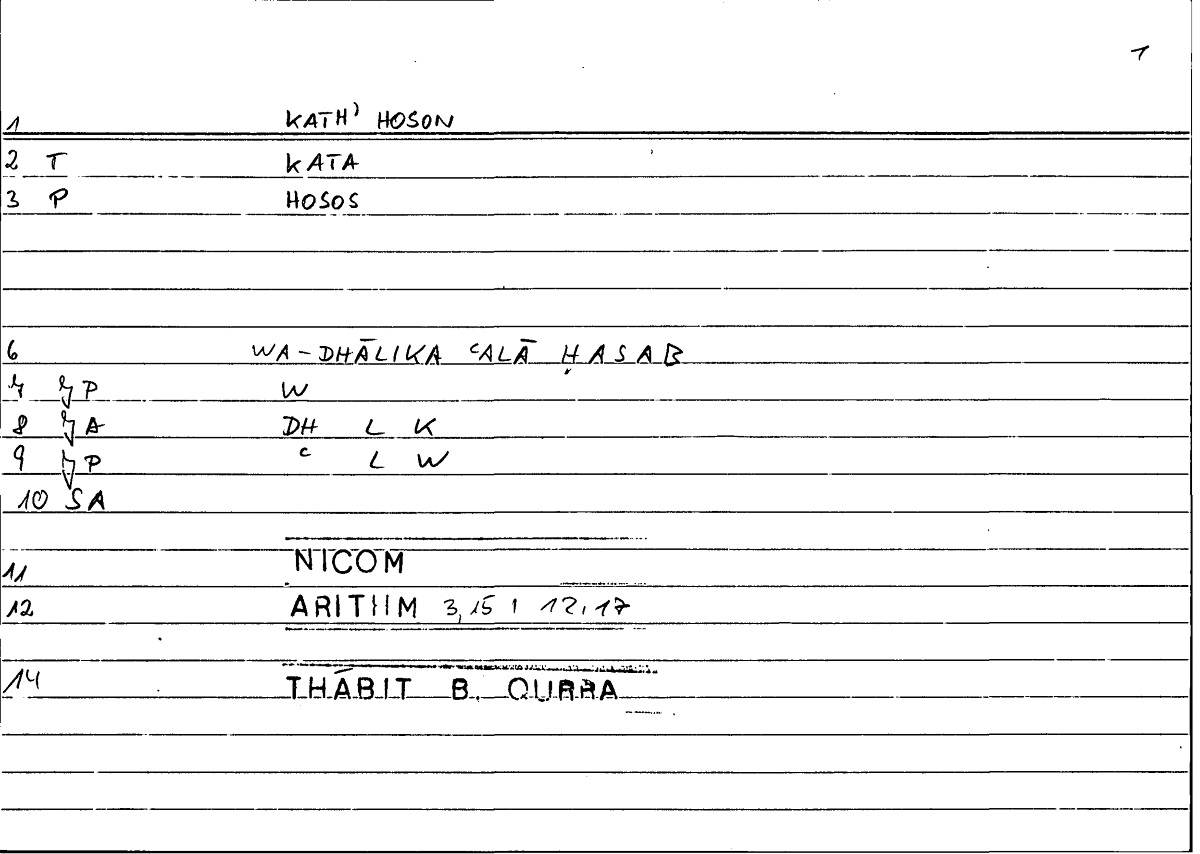 1
1 KATH' HOSON
2 T KATA
3 P HOSOS
6 WA-DHĀLIKA ʿALĀ ḤASAB
7 P W
8 A DH L K
9 P ʿ L W
10 SA
11 NICOM
12 ARITHM 3,15 | 12,17
14 THĀBIT B. QURRA